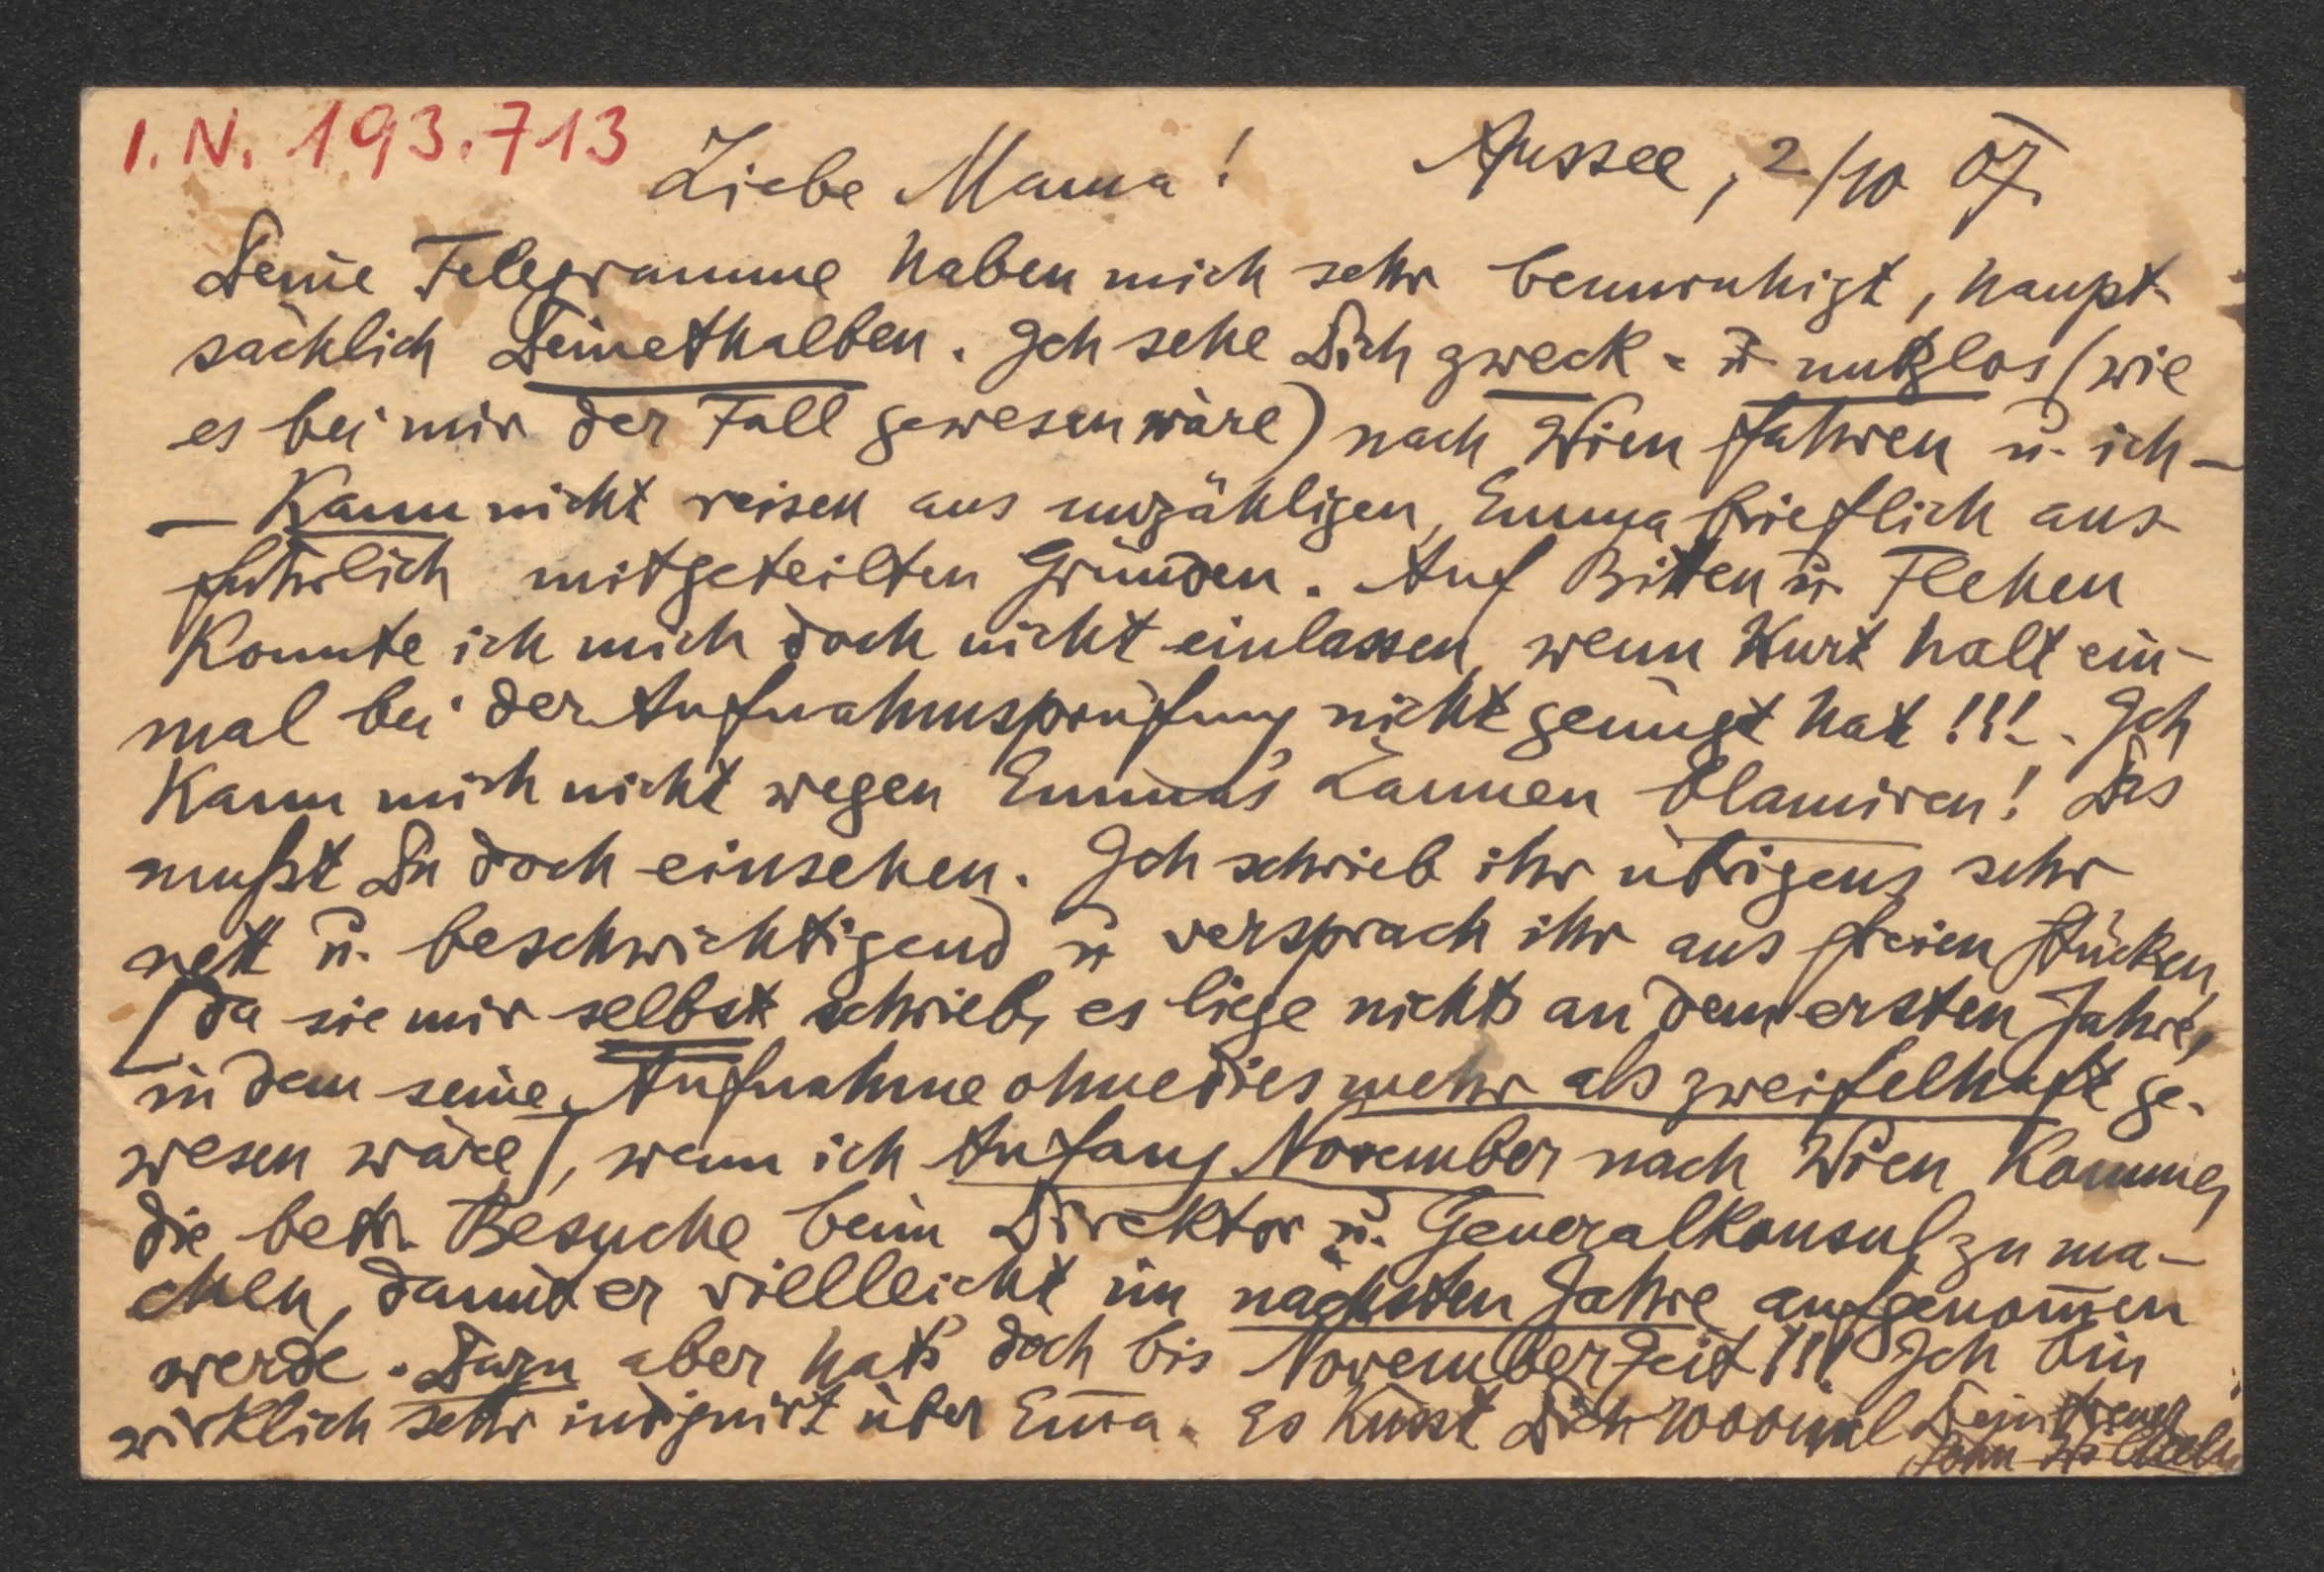 I. N. 193.713
Liebe Mama! Aussee, 2/10 07.
Deine Telegramme haben mich sehr beunruhigt, haupt-
sächlich Deinethalben. Ich sehe Dich zweck- u. nutzlos (wie
es bei mir der Fall gewesen wäre) nach Wien fahren u. ich –
– kann nicht reisen aus unzähligen, Emma brieflich aus-
führlich mitgeteilten Gründen. Auf Bitten u. Flehen
konnte ich mich doch nicht einlassen, wenn Kurt halt ein-
mal bei der Aufnahmsprüfung nicht genügt hat!!!. Ich
kann mich nicht wegen Emma's Launen blamiren! Das
mußt Du doch einsehen. Ich schrieb ihr übrigens sehr
nett u. beschwichtigend u. versprach ihr aus freien Stücken,
[da sie mir selbst schrieb, es liege nichts an dem ersten Jahre,
in dem seine Aufnahme ohnedies mehr als zweifelhaft ge-
wesen wäre], wenn ich Anfang November nach Wien komme,
die betr. Besuche beim Direktor u. Generalkonsul zu ma-
chen, damit er viellleicht im nächsten Jahre aufgenom̅en
werde. Dazu aber hat's doch bis November Zeit!!! Ich bin
wirklich sehr indignirt über Em̅a. Es küsst Dich 1000mal Dein treuer
Sohn